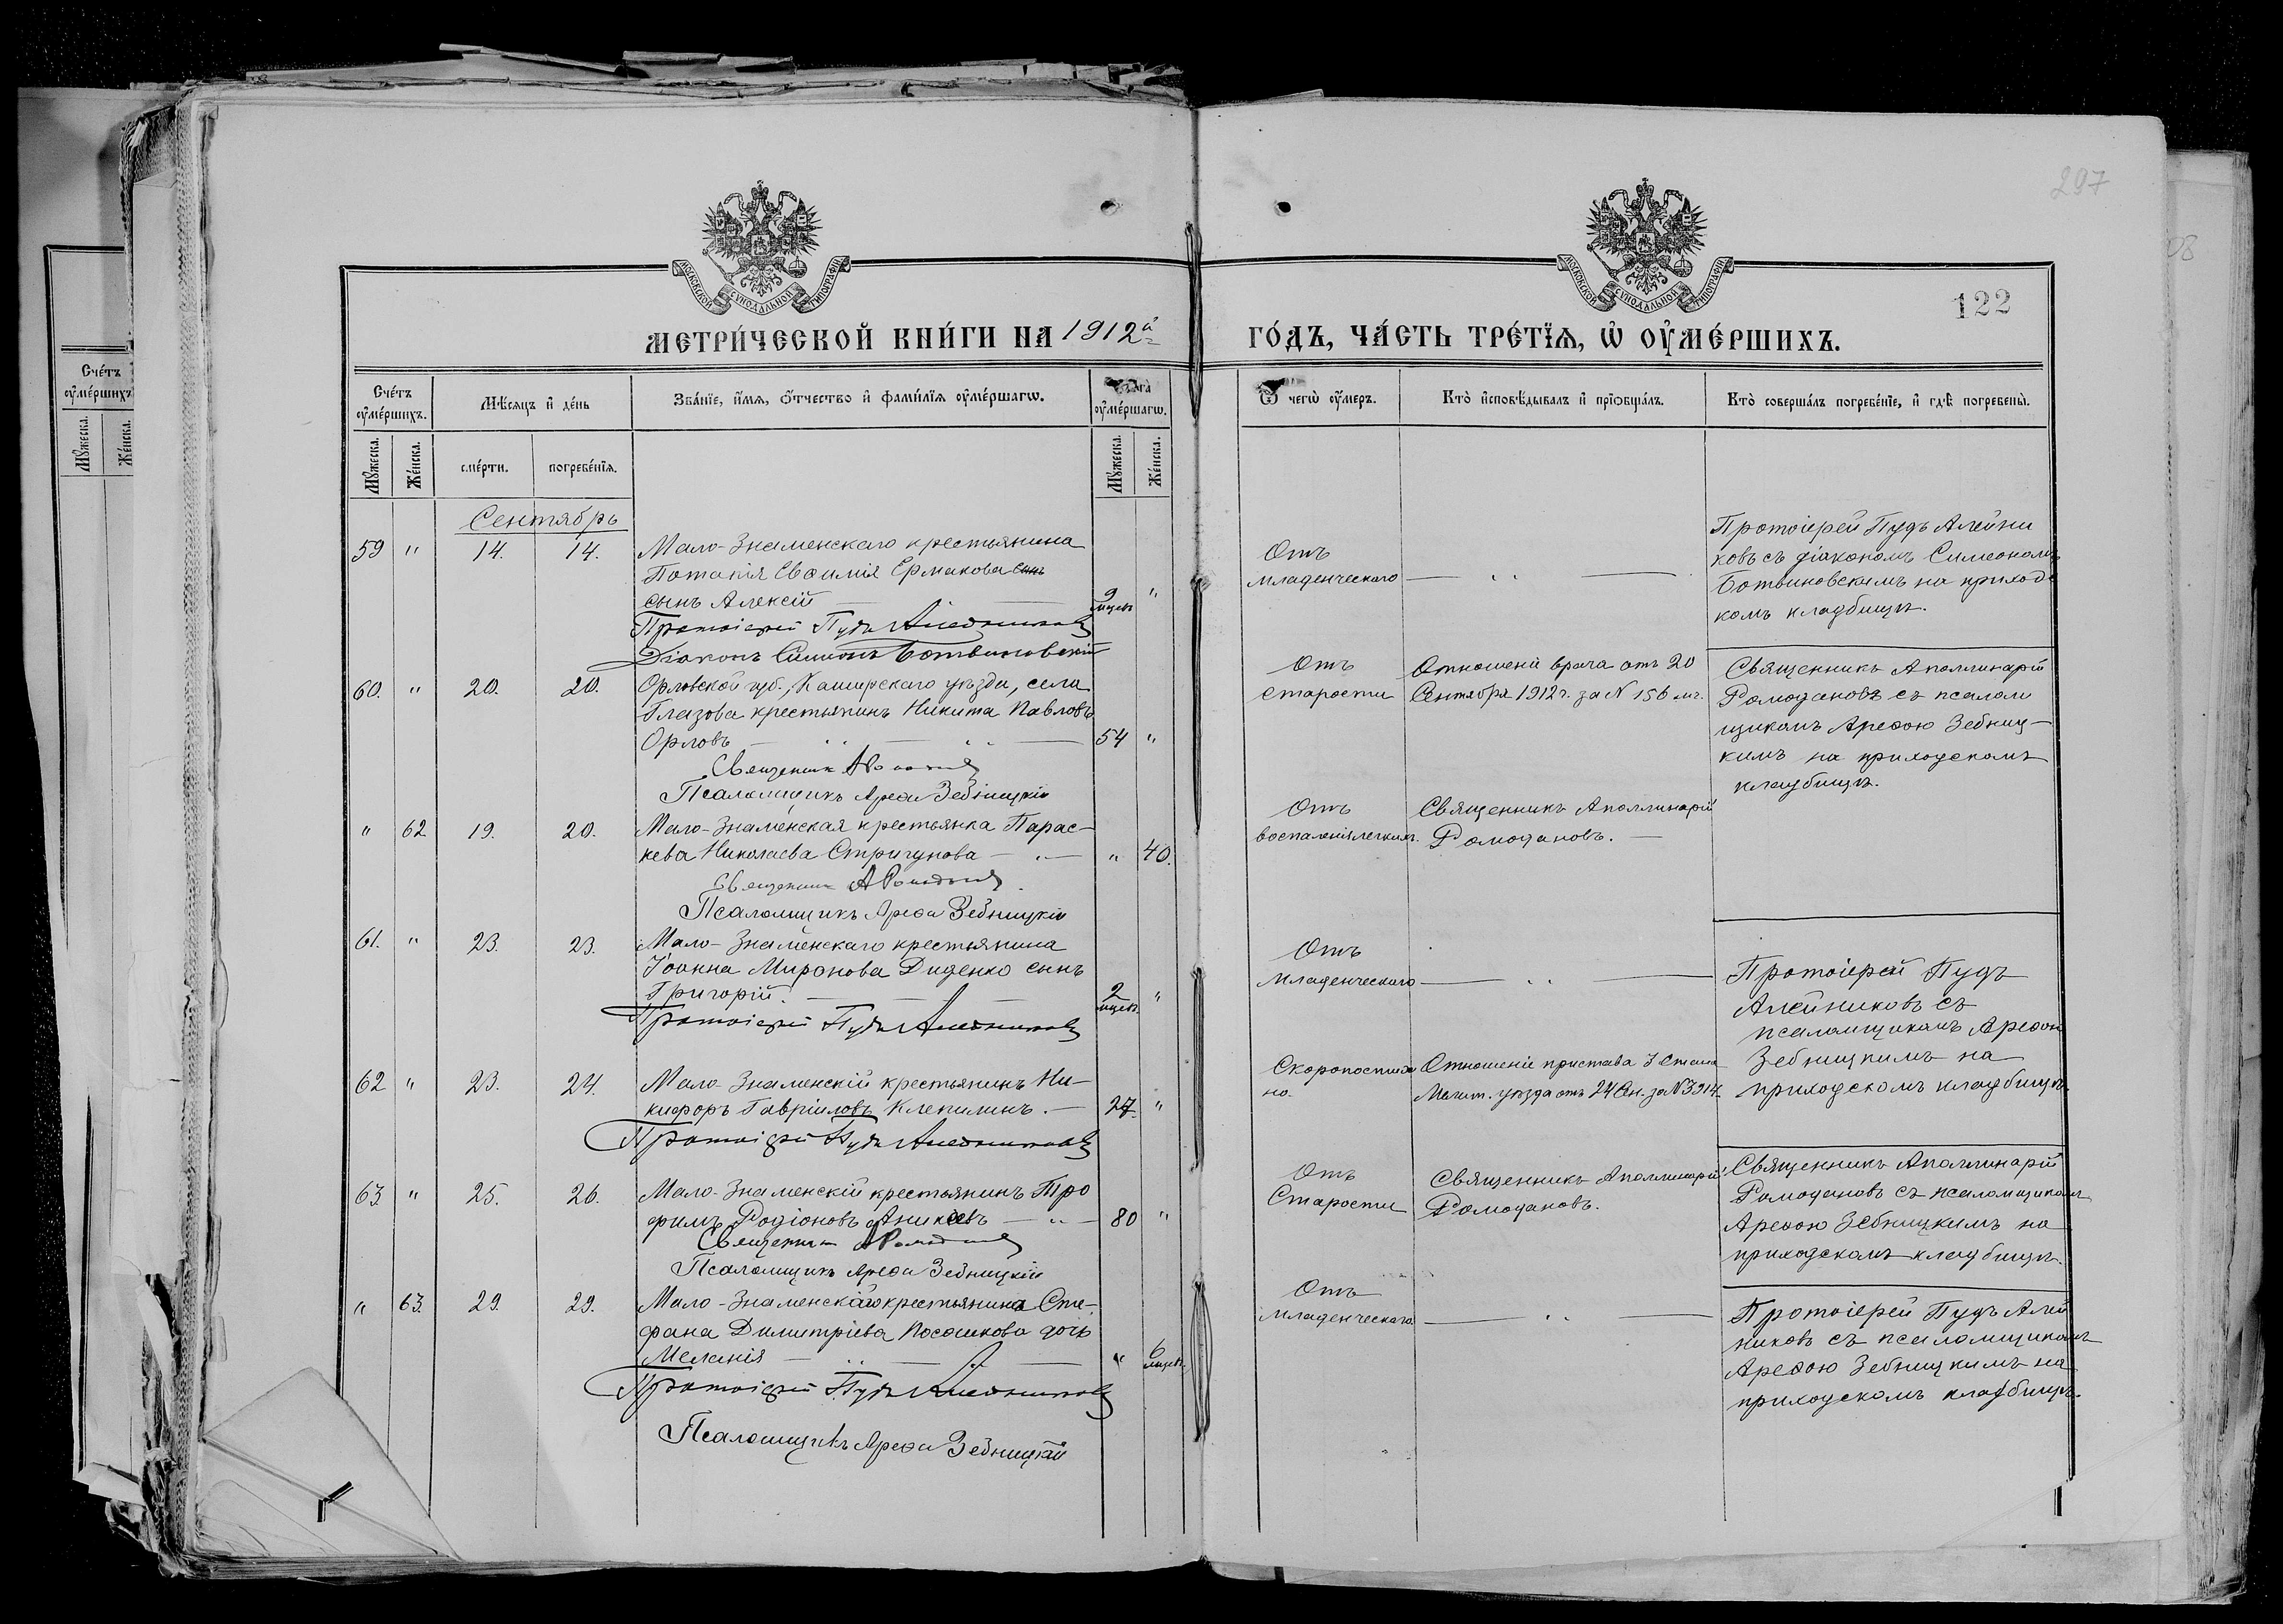 297
МОСКОВСКОЙ СѴНОДАЛЬНОЙ ТИПОГРАФІИ
МОСКОВСКОЙ СѴНОДАЛЬНОЙ ТИПОГРАФІИ
122
МЕТРИ́ЧЕСКОЙ КНИ́ГИ НА 1912й
ГО́ДЪ, ЧА́СТЬ ТРЕ́ТЇѦ, Ѡ҆ ОУ҆МЕ́РШИХЪ.
Сче́тъ оу҆ме́ршихъ.
Мѣ́сяцъ и҆ де́нь
Зва́нїе, и҆́мя, ѻ҆́тчество и҆ фами́лїя оу҆ме́ршагѡ.
оу҆ме́ршагѡ.
Ѿ чегѡ̀ оу҆́меръ.
Кто̀ и҆сповѣ́дывалъ и҆ прїѡбща́лъ.
Кто̀ соверша́лъ погребе́нїе, и҆ гдѣ̀ погребены̀.
Мꙋ́жеска.
Же́нска.
сме́рти.
погребе́нїя.
Мꙋ́жеска.
Же́нска.
Сче́тъ
оу҆ме́ршихъ
Мꙋ́жеска.
Же́нска.
Сентябрь
59 " 14. 14. Мало-Знаменскаго крестьянина
Потапія Евѳимія Ермакова сынъ
сынъ Алексій 9 мцев "
Протоіерей Пудъ Алейниковъ
Діаконъ Симеонъ Ботвиновскій
Отъ
младенческого
Протоіерей Пудъ Алейни
ковъ съ діакономъ Симеономъ
Ботвиновскимъ на приходс
комъ кладбищѣ.
60. " 20. 20. Орловской губ., Каширскаго уѣзда, села
Глазова крестьянинъ Никита Павловъ
Орловъ 54 "
Священник А Ромодановъ
Псаломщикъ Арефа Зебницкій
Отъ
старости
Отношеніе врача отъ 20
Сентября 1912 г. за N 156 мч.
Священникъ Аполлинарій
Ромодановъ съ псалом
щикомъ Арефою Зебниц-
кимъ на приходскомъ
кладбищѣ.
" 62 19. 20. Мало-Знаменская крестьянка Парас-
кева Николаева Стригунова " 40.
Священник А Ромодановъ
Псаломщикъ Арефа Зебницкій
Отъ
воспаленія легкихъ.
Священникъ Аполлинарій
Ромодановъ.
61. " 23. 23. Мало-Знаменскаго крестьянина
Іоанна Миронова Диденко сынъ
Григорій. 2 мцев. "
Протоіерей Пудъ Алейниковъ
Отъ
младенческого
Протоіерей Пудъ
Алейниковъ съ
псаломщикомъ Арефою
Зебницкимъ на
приходскомъ кладбищѣ.
62 " 23. 24. Мало-Знаменскій крестьянинъ Ни-
кифоръ Гавріиловъ Клепилинъ. 27. "
Протоіерей Пудъ Алейниковъ
Скоропостиж
но.
Отношеніе пристава 3 стана
Мелит. уѣзда отъ 24 Сен. за N 3914.
63 " 25. 26. Мало-Знаменскій крестьянинъ Тро
фимъ Родіоновъ Аникеевъ 80 "
Священник А Ромодановъ
Псаломщикъ Арефа Зебницкій
Отъ
Старости
Священникъ Аполлинарій
Ромодановъ.
Священникъ Аполлинарій
Ромодановъ съ псаломщикомъ
Арефою Зебницкимъ на
приходскомъ кладбищѣ.
" 63. 29. 29. Мало-Знаменскаго крестьянина Сте-
фана Димитріева Посошкова дочь
Меланія " 6 мцев.
Протоіерей Пудъ Алейниковъ
Псаломщикъ Арефа Зебницкій
Отъ
младенческаго
Протоіерей Пудъ Алей
никовъ съ псаломщикомъ
Арефою Зебницкимъ на
приходскомъ кладбищѣ.